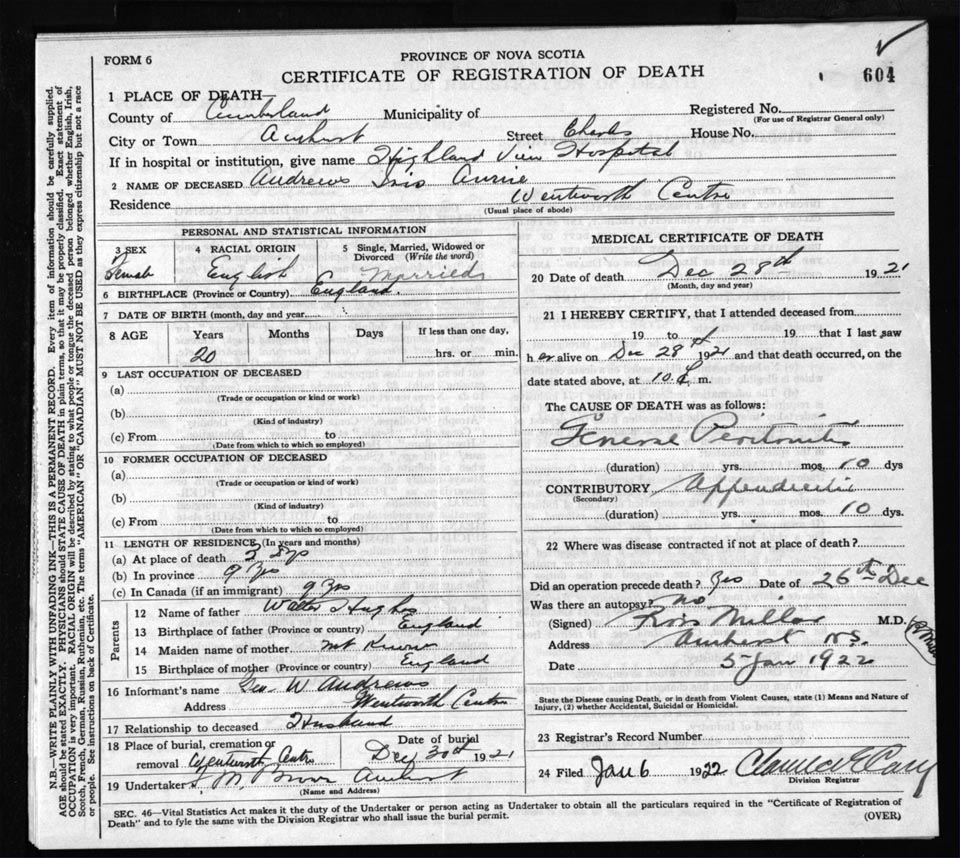 FORM 6
PROVINCE OF NOVA SCOTIA
CERTIFICATE OF REGISTRATION OF DEATH
604
1 PLACE OF DEATH—
County of Cumberland Municipality of
Registered No.
(For use of Registrar General only)
City or Town Amherst Street House No.
If in hospital or institution, give name Highland View Hospital
2 NAME OF DECEASED Andrews Iris Annie
Residence Wentworth Centre
(Usual place of abode)
PERSONAL AND STATISTICAL INFORMATION
3 SEX
Female
4 RACIAL ORIGIN
English
5 Single, Married, Widowed or Divorced (Write the word)
Married
6 BIRTHPLACE (Province or Country) England
7 DATE OF BIRTH (month, day and year)
8 AGE Years Months Days If less than one day,
20 hrs. or min.
9 LAST OCCUPATION OF DECEASED
(a)
(Trade or occupation or kind or work)
(b)
(Kind of industry)
(c) From to
(Date from which to which so employed)
10 FORMER OCCUPATION OF DECEASED
(a)
(Trade or occupation or kind of work)
(b)
(Kind of industry)
(c) From to
(Date from which to which so employed)
11 LENGTH OF RESIDENCE (In years and months)
(a) At place of death 3
(b) In province 9 yrs
(c) In Canada (if an immigrant) 9 yrs
Parents
12 Name of father Walter Hughes
13 Birthplace of father (Province or country) England
14 Maiden name of mother not known
15 Birthplace of mother (Province or country) England
16 Informant's name Geo. W Andrews
Address Wentworth Centre
17 Relationship to deceased Husband
18 Place of burial, cremation or removal Wentworth Centre
Date of burial Dec 30th 1921
19 Undertaker Amherst
(Name and Address)
MEDICAL CERTIFICATE OF DEATH
20 Date of death Dec 28th 1921
(Month, day and year)
21 I HEREBY CERTIFY, that I attended deceased from
19 to 19 that I last saw
her alive on Dec 28th 1921 and that death occurred, on the
date stated above, at 10 m.
The CAUSE OF DEATH was as follows:
General Peritonitis
(duration) yrs. mos. 10 dys
CONTRIBUTORY Appendicitis
(Secondary)
(duration) yrs. mos. 10 dys.
22 Where was disease contracted if not at place of death?
Did an operation precede death? Yes Date of 26th Dec
Was there an autopsy? No
(Signed) Ross Millar M.D.
Address Amherst N.S.
Date 5 Jan 1922
State the Disease causing Death, or in death from Violent Causes, state (1) Means and Nature of
Injury, (2) whether Accidental, Suicidal or Homicidal.
23 Registrar's Record Number
24 Filed Jan 6 1922
Division Registrar
SEC. 46—Vital Statistics Act makes it the duty of the Undertaker or person acting as Undertaker to obtain all the particulars required in the "Certificate of Registration of
Death" and to fyle the same with the Division Registrar who shall issue the burial permit.
(OVER)
N.B.—WRITE PLAINLY WITH UNFADING INK—THIS IS A PERMANENT RECORD. Every item of information should be carefully supplied.
AGE should be stated EXACTLY. PHYSICIANS should STATE CAUSE OF DEATH in plain terms, so that it may be properly classified. Exact statement of
OCCUPATION is very important. RACIAL ORIGIN will be described by stating to what people or tongue the deceased person belonged whether English, Irish,
Scotch, French, German, Russian, Ruthenian, etc. The terms "AMERICAN" OR "CANADIAN" MUST NOT BE USED as they express citizenship but not a race
or people. See instructions on back of Certificate.